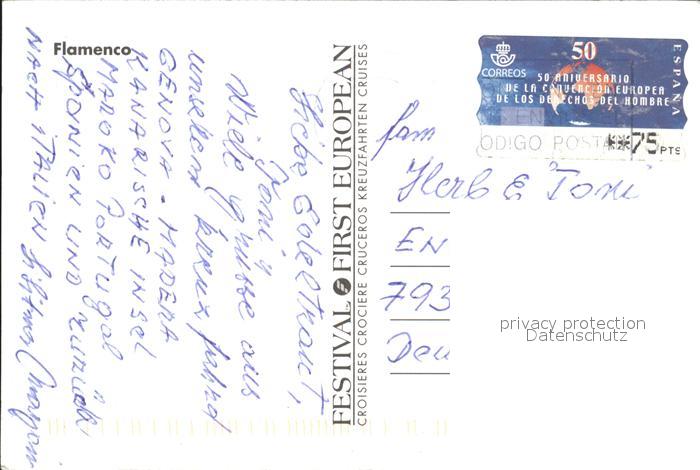 Flamenco
Liebe Edeltraut,
Toni
Viele Grüsse aus
unserer Kreuzfahrt
GENOVA - MADERA
KANARISCHE INSEL
MAROKO PORTUGAL
SPANIEN UND ZURÜCK
NACH ITALIEN
FESTIVAL FIRST EUROPEAN
CROISIERES CROCIERE CRUCEROS KREUZFAHRTEN CRUISES
CORREOS
50
ESPAÑA
50 ANIVERSARIO
DE LA CONVENCION EUROPEA
DE LOS DERECHOS DEL HOMBRE
ODIGO POSTA
**75 PTS
Fam
Herb & Toni
EN
793
Deu
privacy protection
Datenschutz